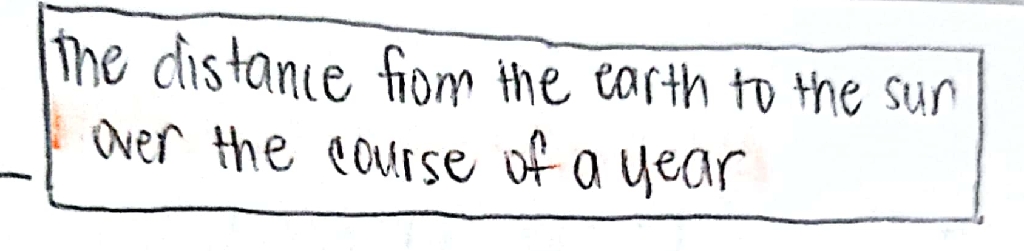 the distance from the earth to the sun
over the course of a year